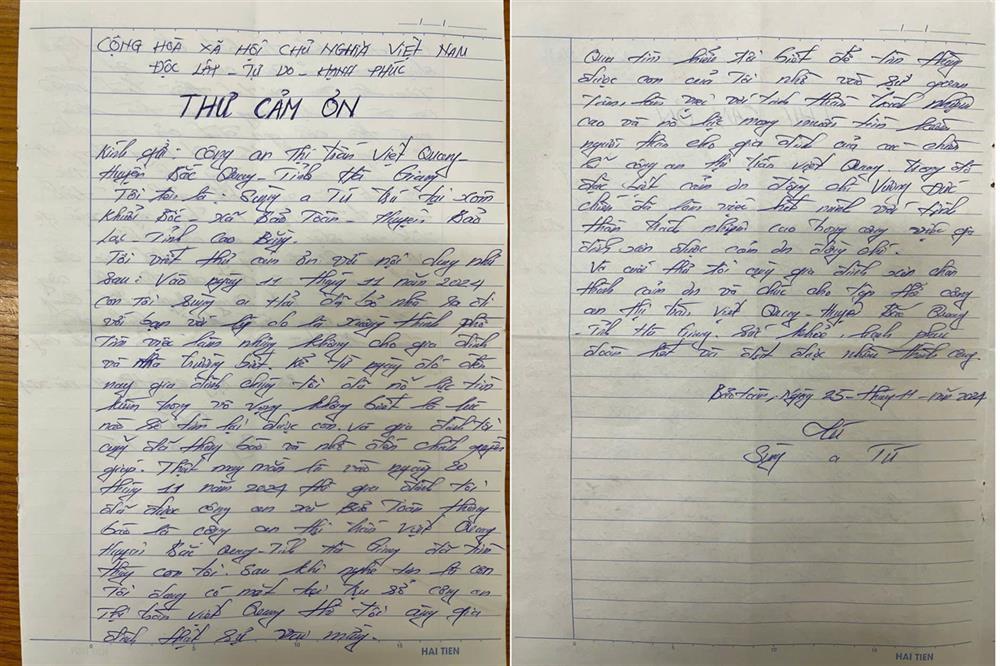 CỘNG HOÀ XÃ HỘI CHỦ NGHĨA VIỆT NAM
ĐỘC LẬP - TỰ DO - HẠNH PHÚC
THƯ CẢM ƠN
Kính gửi: Công an Thị trấn Việt Quang -
Huyện Bắc Quang - Tỉnh Hà Giang
Tôi tên là: Sùng A Tú trú tại xóm
Khuổi - xã Bảo Toàn - Huyện Bảo
Lạc - Tỉnh Cao Bằng.
Tôi viết thư cảm ơn với nội dung như
sau: Vào ngày 11 tháng 11 năm 2024
con tôi Sùng A đã bỏ nhà ra đi
với bạn với lý do là xuống thành phố
Tìm việc làm nhưng không cho gia đình
và nhà trường biết kể từ ngày đó đến
nay gia đình chúng tôi đã nỗ lực tìm
kiếm trong vô vọng không biết là lúc
nào sẽ tìm lại được con. Và gia đình tôi
cũng đã thông báo và nhờ đến chính quyền
giúp. Thật may mắn là vào ngày 20
tháng 11 năm 2024 thì gia đình tôi
đã được công an xã Bảo Toàn thông
báo là công an thị trấn Việt Quang
Huyện Bắc Quang - Tỉnh Hà Giang đã tìm
thấy con tôi. Sau khi nghe tin là con
Tôi đang có mặt tại trụ sở công an
Thị trấn Việt Quang thì tôi cùng gia
đình thật sự vui mừng.
HAI TIEN
Qua tìm hiểu tôi biết để tìm thấy
được con của Tôi nhờ vào sự quan
Tâm, làm việc với tinh thần trách nhiệm
cao và nỗ lực mong muốn tìm kiếm
người thân cho gia đình của các chiến
sĩ công an thị trấn Việt Quang trong đó
đặc biệt cảm ơn đồng chí Vương Đức
đã làm việc hết mình với tinh
thần trách nhiệm cao trong công việc gia
đình xin được cảm ơn đồng chí.
Và cuối thư tôi cùng gia đình xin chân
thành cảm ơn và chúc cho tập thể công
an thị trấn Việt Quang - Huyện Bắc Quang
Tỉnh Hà Giang. Sức khỏe, hạnh phúc
đoàn kết và đạt được nhiều thành công.
Bảo Toàn, Ngày 25 - tháng 11 - năm 2024
Tú
Sùng A Tú
HAI TIEN